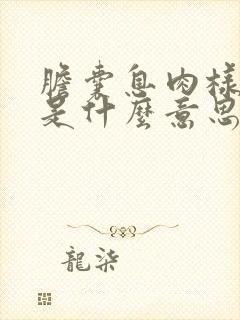 膽囊息肉樣
是什麼意思
龍柒